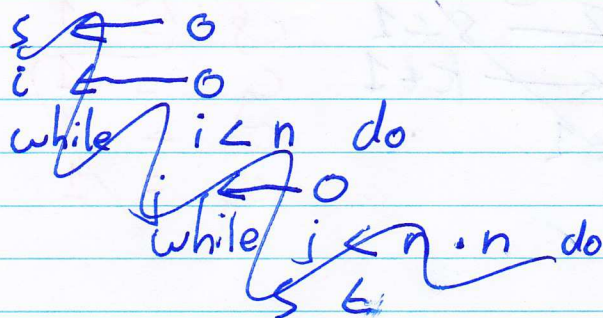 s ← 0
i ← 0
while i < n do
j ← 0
while j < n · n do
s ←